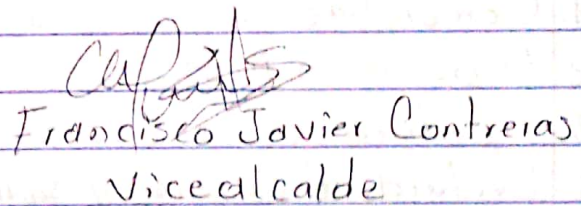 Francisco Javier Contreras
Vicealcalde